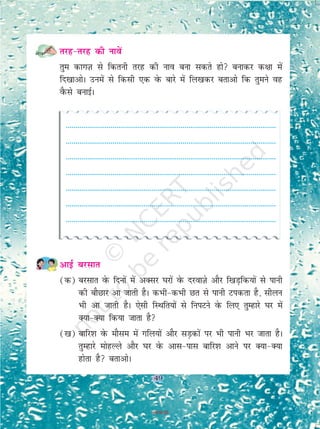 तरह-तरह की नावें
तुम कागज़ से कितनी तरह की नाव बना सकते हो? बनाकर कक्षा में
दिखाओ। उनमें से किसी एक के बारे में लिखकर बताओ कि तुमने वह
कैसे बनाई।
© NCERT
be republished
आई बरसात
(क) बरसात के दिनों में अक्सर घरों के दरवाज़े और खिड़कियों से पानी
की बौछार आ जाती है। कभी-कभी छत से पानी टपकता है, सीलन
भी आ जाती है। ऐसी स्थितियों से निपटने के लिए तुम्हारे घर में
क्या-क्या किया जाता है?
(ख) बारिश के मौसम में गलियों और सड़कों पर भी पानी भर जाता है।
तुम्हारे मोहल्ले और घर के आस-पास बारिश आने पर क्या-क्या
होता है? बताओ।